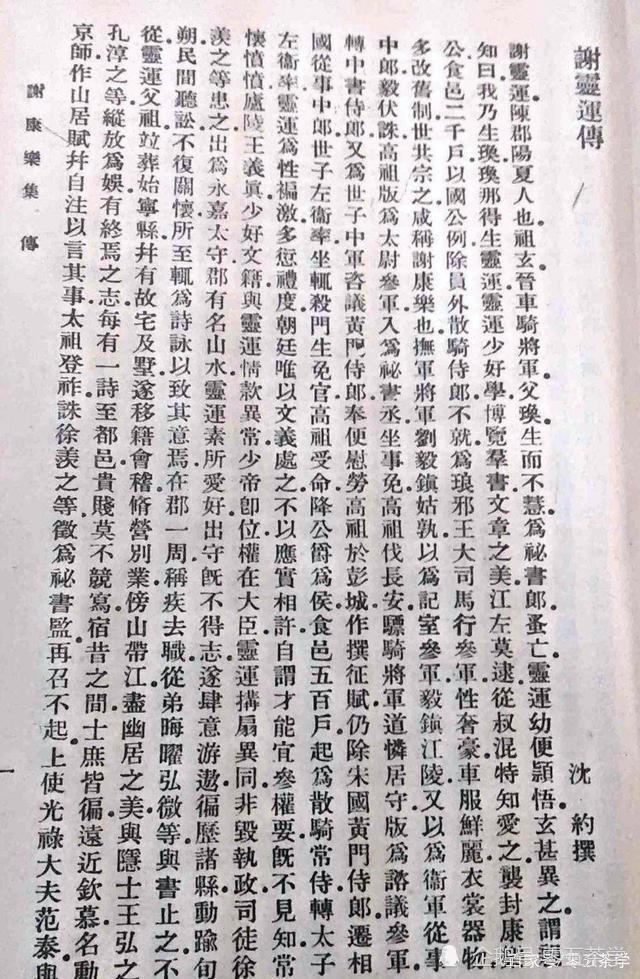 謝靈運傳
沈約撰
謝靈運陳郡陽夏人也.祖玄晉車騎將軍.父瑍生而不慧.爲祕書郎蚤亡.靈運幼便頴悟.玄甚異之.謂親
知曰.我乃生瑍瑍那得生靈運.靈運少好學.博覽羣書.文章之美.江左莫逮.從叔混特知愛之.襲封康樂
公.食邑二千戶.以國公例除員外散騎侍郎.不就.爲琅邪王大司馬行參軍.性奢豪.車服鮮麗.衣裳器物.
多改舊制.世共宗之.咸稱謝康樂也.撫軍將軍劉毅鎮姑孰.以爲記室參軍.毅鎮江陵.又以爲衞軍從事
中郎.毅伏誅.高祖版爲太尉參軍.入爲祕書丞.坐事免.高祖伐長安.驃騎將軍道憐居守.版爲諮議參軍.
轉中書侍郎.又爲世子中軍咨議黃門侍郎.奉使慰勞高祖於彭城.作撰征賦.仍除宋國黃門侍郎.遷相
國從事中郎.世子左衞率.坐輒殺門生免官.高祖受命.降公爵爲侯.食邑五百戶.起爲散騎常侍.轉太子
左衞率.靈運爲性褊激.多愆禮度.朝廷唯以文義處之.不以應實相許.自謂才能宜參權要.既不見知.常
懷憤憤.廬陵王義眞少好文籍.與靈運情款異常.少帝卽位.權在大臣.靈運搆扇異同.非毀執政.司徒徐
羨之等患之.出爲永嘉太守.郡有名山水.靈運素所愛好.出守既不得志.遂肆意游遨.徧歷諸縣.動踰旬
朔.民間聽訟.不復關懷.所至輒爲詩詠以致其意焉.在郡一周.稱疾去職.從弟晦曜弘微等與書止之不
從.靈運父祖竝葬始寧縣.幷有故宅及墅.遂移籍會稽.脩營別業.傍山帶江.盡幽居之美.與隱士王弘之
孔淳之等縱放爲娛.有終焉之志.每有一詩至都邑.貴賤莫不競寫.宿昔之間.士庶皆徧.遠近欽慕.名動
京師.作山居賦幷自注以言其事.太祖登祚.誅徐羨之等.徵爲祕書監.再召不起.上使光祿大夫范泰與
謝康樂集 傳
一